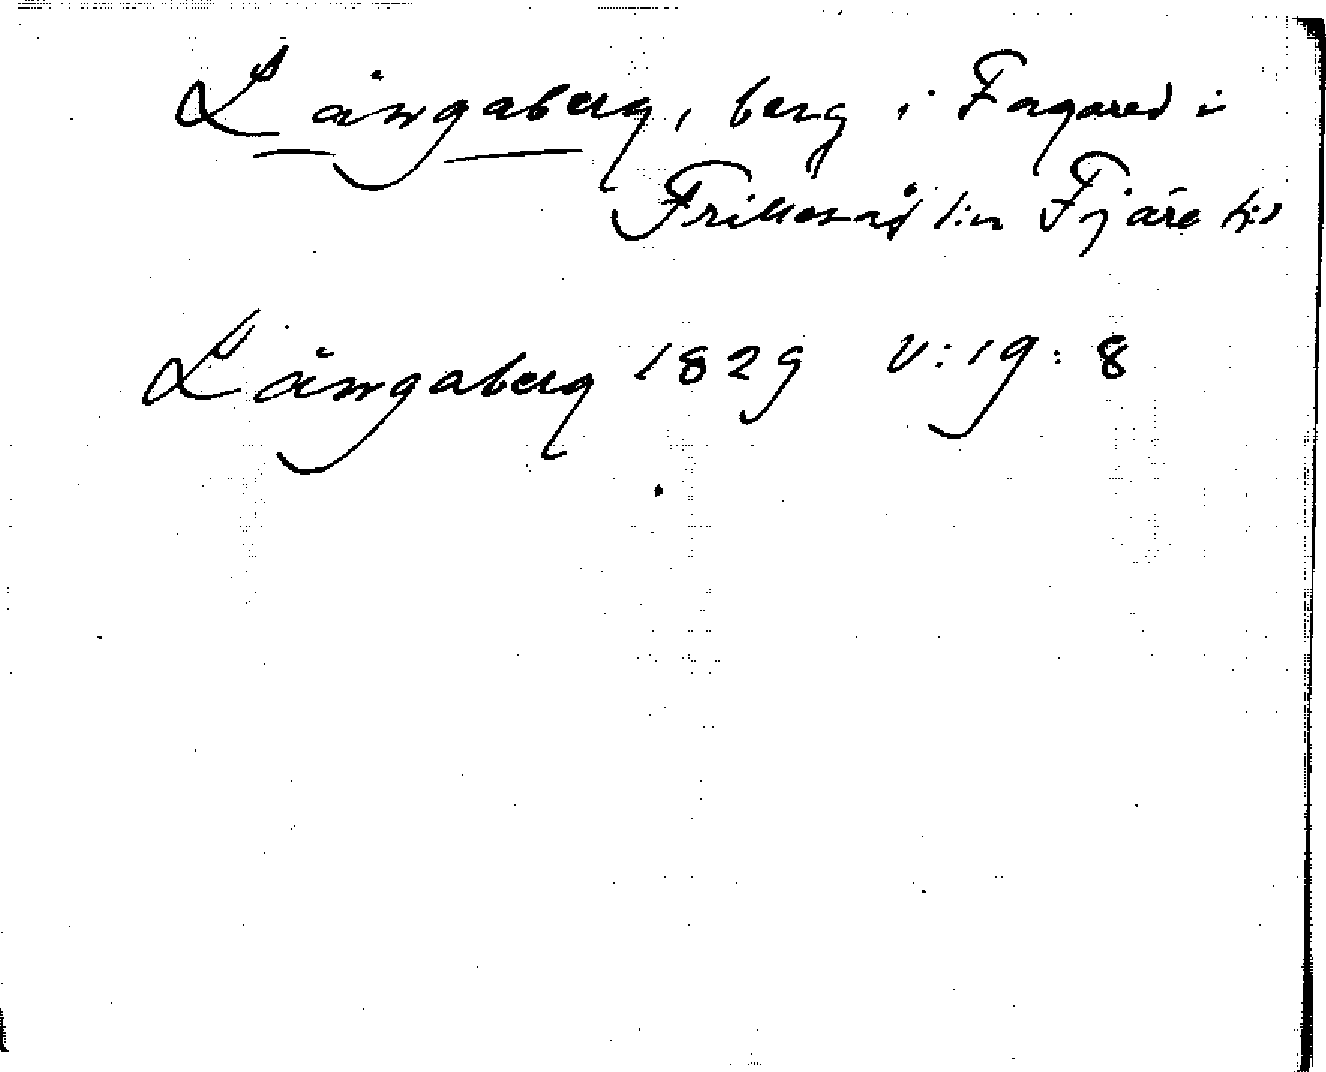 Långaberg, berg i Fagared i
Frillesås s:n Fjäre h:d
Långaberg 1829 V:19:8